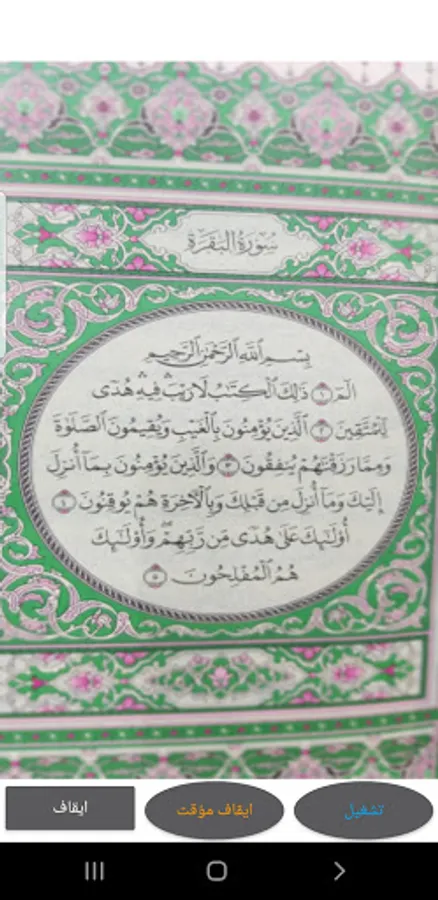 سُورَةُ البَقَرَةِ
بِسْمِ ٱللَّهِ ٱلرَّحْمَٰنِ ٱلرَّحِيمِ
الٓمٓ ١ ذَٰلِكَ ٱلْكِتَٰبُ لَا رَيْبَ ۛ فِيهِ ۛ هُدًى
لِّلْمُتَّقِينَ ٢ ٱلَّذِينَ يُؤْمِنُونَ بِٱلْغَيْبِ وَيُقِيمُونَ ٱلصَّلَوٰةَ
وَمِمَّا رَزَقْنَٰهُمْ يُنفِقُونَ ٣ وَٱلَّذِينَ يُؤْمِنُونَ بِمَآ أُنزِلَ
إِلَيْكَ وَمَآ أُنزِلَ مِن قَبْلِكَ وَبِٱلْءَاخِرَةِ هُمْ يُوقِنُونَ ٤
أُو۟لَٰٓئِكَ عَلَىٰ هُدًى مِّن رَّبِّهِمْ ۖ وَأُو۟لَٰٓئِكَ
هُمُ ٱلْمُفْلِحُونَ ٥
تشغيل
ايقاف مؤقت
ايقاف